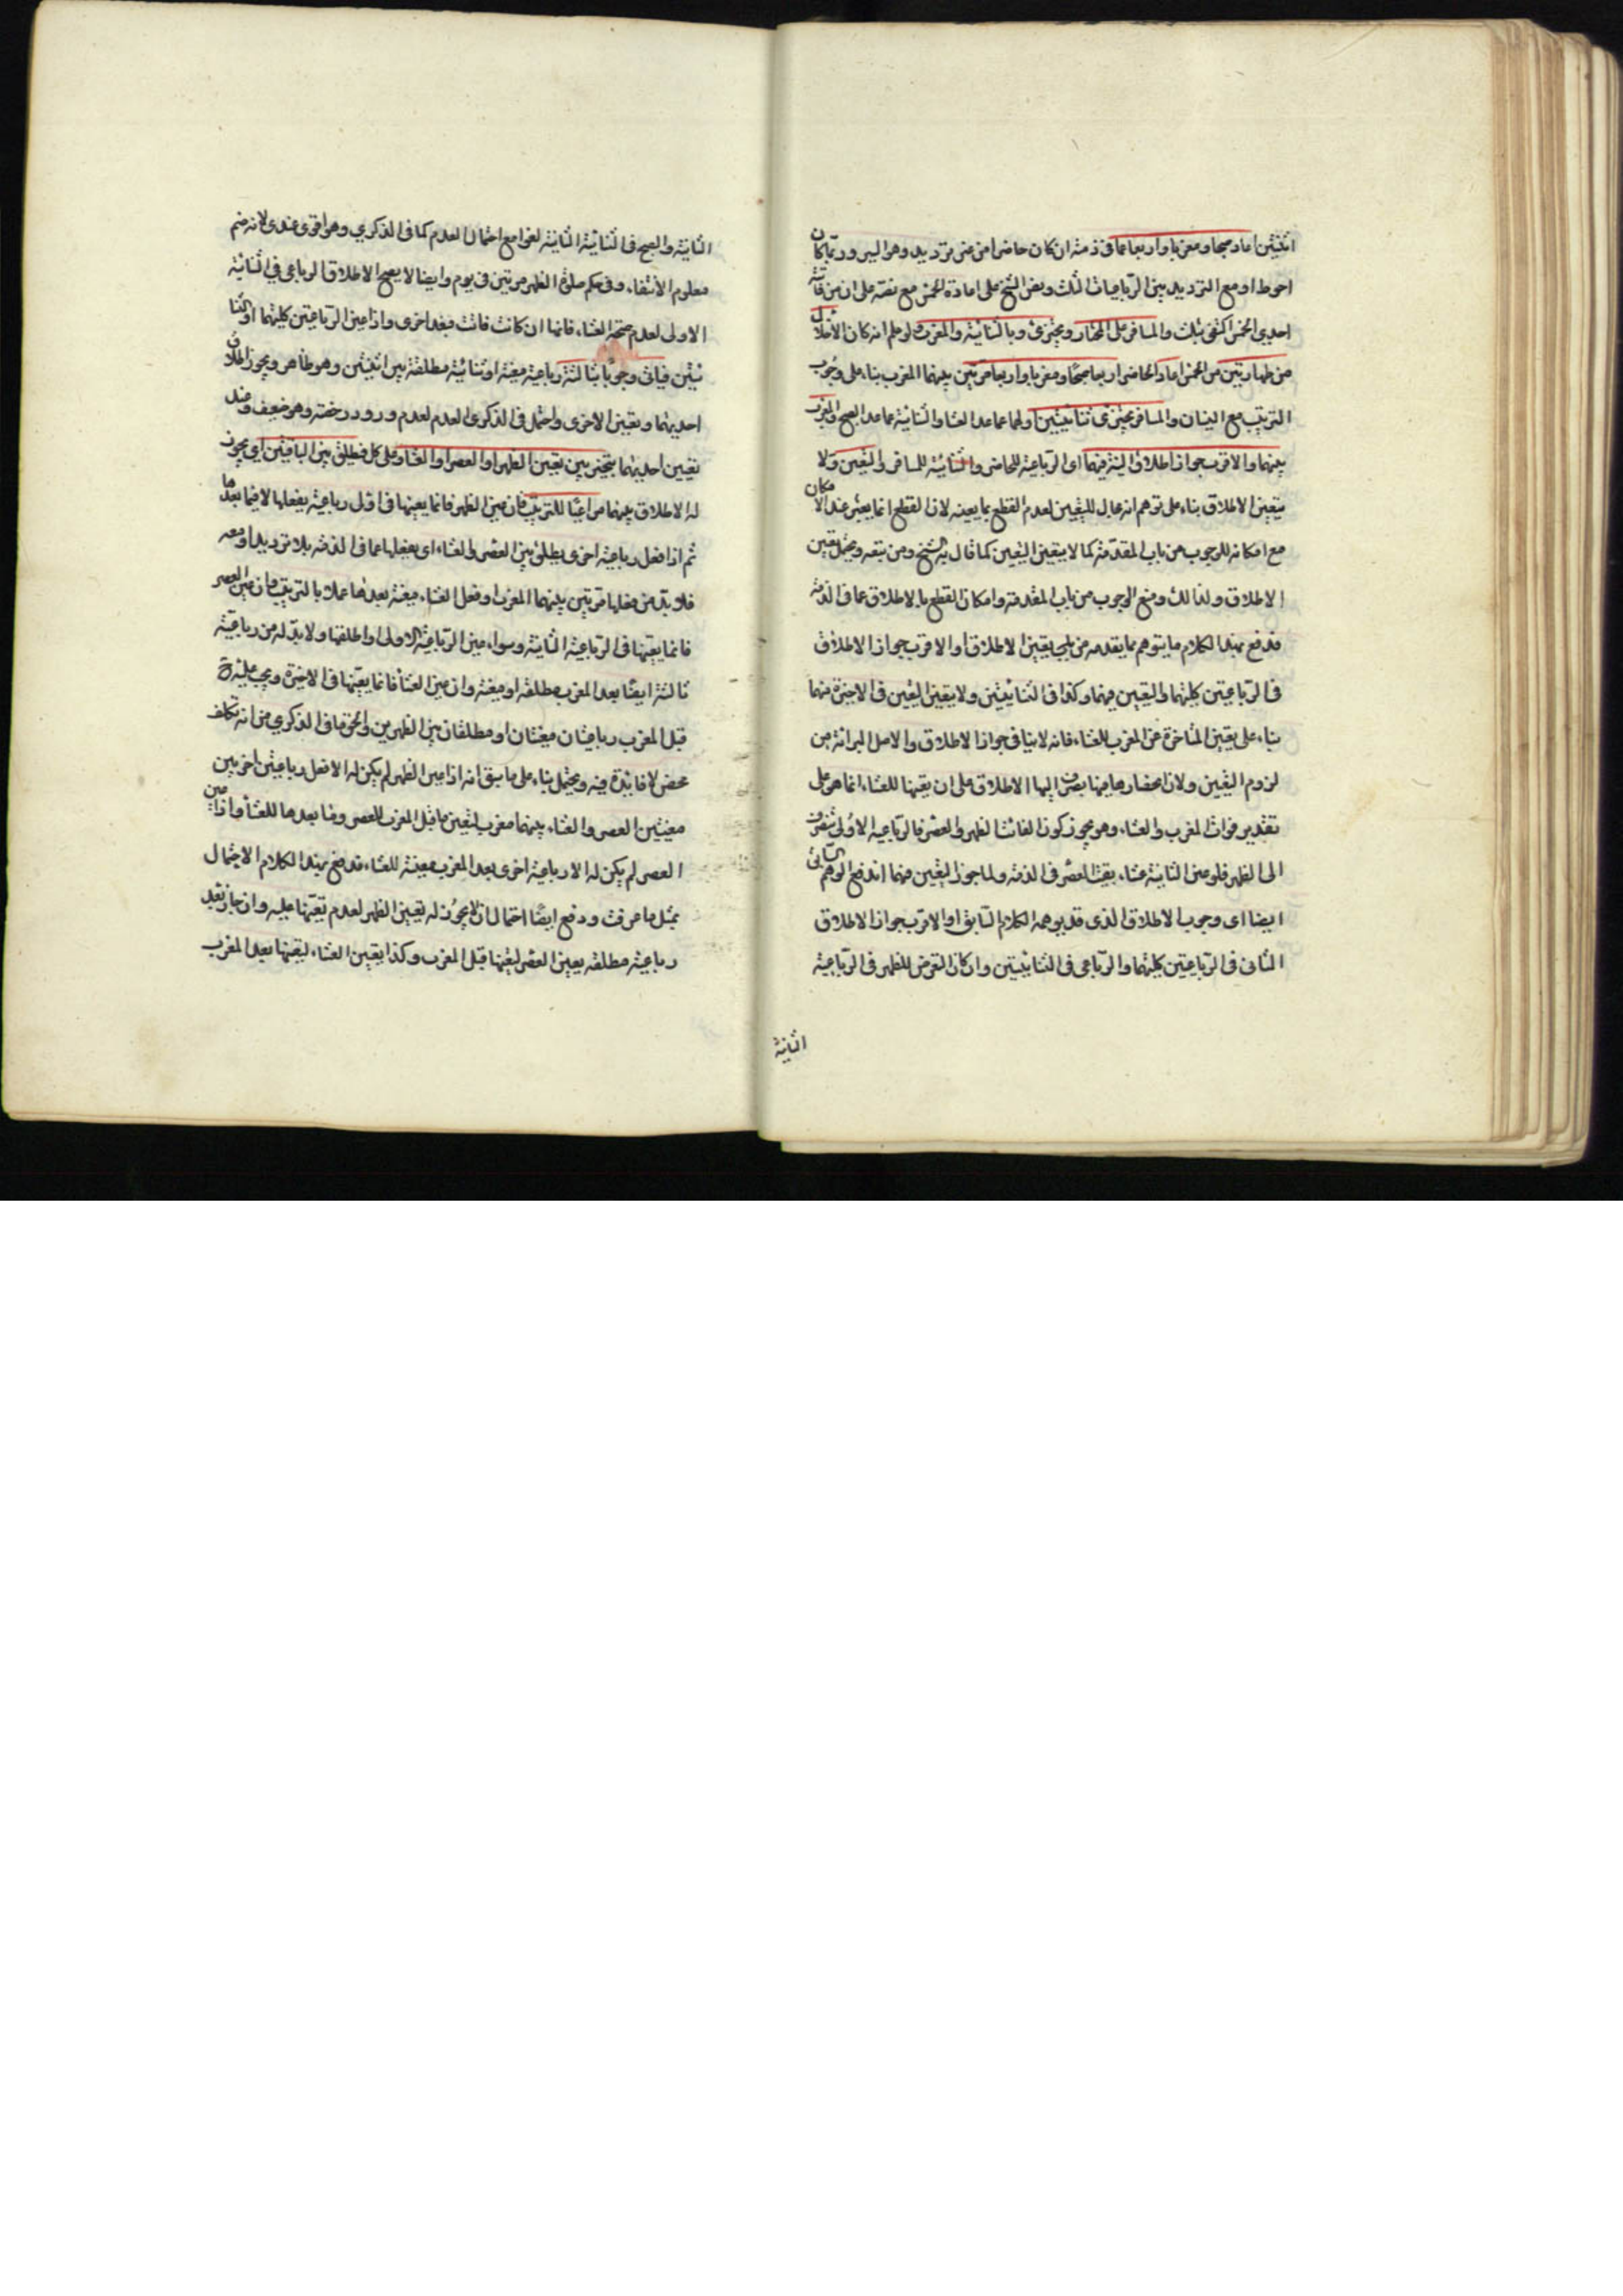 اثنتين اعاد صبحا ومغربا واربعا عما في ذمته ان كان حاضرا من غير ترديد وهو اليسر وربما كان
احوط او مع الترديد بين الرباعيات الثلث ونص الشيخ على اعادة الخمس مع نصه على ان من فاتته
احدى الخمس اكتفى بثلث والمسافر على المختار ويجتزئ وبالثنائية والمغرب ولو علم انه كان الاخلال
من طهارتين من الخمس اعاد الحاضر اربعا صبحا ومغربا واربعا مرتين بينهما المغرب بناء على وجوب
الترتيب مع النسيان والمسافر يجتزئ ثنائيتين اولهما عما عدا العشا والثانية عما عدا الصبح والمغرب
بينهما والاقرب جواز اطلاق النية فيهما اي الرباعية للحاضر والثنائية للمسافر والتعيين ولا
يتعين الاطلاق بناء على توهم انه عابل للتعيين لعدم القطع بما يعينه لان القطع انما يعتبر عند الامكان
مع امكانه للوجوب من باب المقدمة كما لا يتعين التعيين كما قال به الشيخ ومن تبعه ويحتمل تعين
الاطلاق ولذلك ومنع الوجوب من باب المقدمة وامكان القطع بالاطلاق عما في الذمة
قد دفع بهذا الكلام ما يتوهم مما يقدمه من تعين الاطلاق او الاقرب جواز الاطلاق
في الرباعيتين كلتيهما والتعيين فيهما وكذا في الثنائيتين ولا يتعين التعيين في الاخيرة منهما
بناء على تعين المتاخرة عن المغرب للعشاء فانه لا ينافي جواز الاطلاق والاصل البرائة من
لزوم التعيين ولان انحصارها فيها بصرف اليها الاطلاق على ان تعينها للعشاء انما هو على
تقدير فوات المغرب والعشاء وهو يجوز كون الفائت الظهر والعصر فالرباعية الاولى تنصرف
الى الظهر فلو عين الثانية عشاء بقيت العصر في الذمة ولما جوز التعيين فيهما اندفع الوهم الثاني
ايضا اي وجوب الاطلاق الذي قد يوهمه الكلام السابق او الاقرب جواز الاطلاق
الثاني في الرباعيتين كلتيهما والرباعي في الثنائيتين وان كان التعرض للظهر في الرباعية
الثانية
الثانية والصبح في الثنائية الثانية لغوا مع احتمال العدم كما في الذكرى وهو اقوى عندي لانه ضم
معلوم الانتفاء وفي حكم صلوة الظهر مرتين في يوم وايضا لا يصح الاطلاق الرباعي في الثنائية
الاولى لعدم صحة العشاء فانها ان كانت فاتت فبعد اخرى واذا عين الرباعيتين كلتيهما او الثنا
ئيتين فيأتي وجوبا بثالثة رباعية معينة او ثنائية مطلقة بين اثنتين وهو ظاهر ويجوز اطلاق
احديهما وتعيين الاخرى واحتمل في الذكرى العدم لعدم ورود رخصته وهو ضعيف وعند
تعيين احديهما يتخير بين تعيين الظهر او العصر او العشاء وعلى كل فيطلق بين الباقيتين اي يجوز
له الاطلاق بينهما مراعيا للترتيب فان عين الظهر فانما يعينها في اول رباعية يفعلها لا فيما بعدها
ثم اذا فعل رباعية اخرى يطلق بين العصر والعشاء اي يفعلها عما في الذمة بلا ترديد او معه
فلا بد من فعلها مرتين بينهما المغرب او فعل العشاء معينة بعدها عملا بالترتيب فان عين العصر
فانما يعينها في الرباعية الثانية وسواء عين الرباعية الاولى او اطلقها ولا بد له من رباعية
ثالثة ايضا بعد المغرب مطلقة او معينة وان عين العشاء فانما يعينها في الاخيرة ويجب عليه ح
قبل المغرب رباعيتان معينتان او مطلقتان بين الظهرين والحق ما في الذكرى من انه تكلف
محض لا فايدة فيه ويحتمل بناء على ما سبق انه اذا عين الظهر لم يكن له الا فعل رباعيتين اخريين
معينتين العصر والعشاء بينهما مغرب لتعين ما قبل المغرب للعصر وما بعدها للعشاء واذا عين
العصر لم يكن له الا رباعية اخرى بعد المغرب معينة للعشاء فدفع بهذا الكلام الاحتمال
بمثل ما عرفت ودفع ايضا احتمال ان لا يجوز له تعيين الظهر لعدم تعينها عليه وان جاز بعد
رباعية مطلقة تعيين العصر لتعينها قبل المغرب وكذا تعيين العشاء لتعينها بعد المغرب